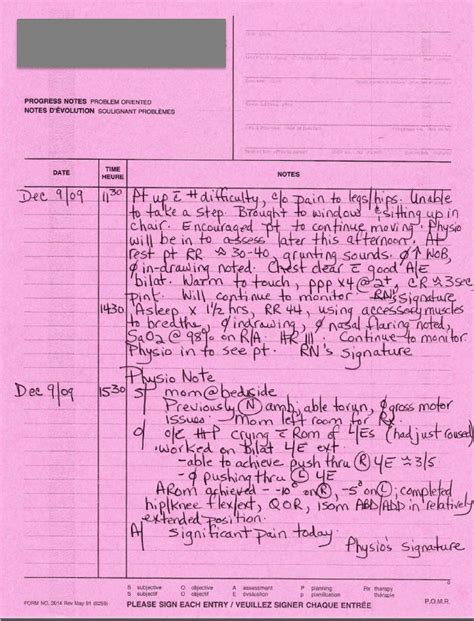 PROGRESS NOTES PROBLEM ORIENTED
NOTES D'ÉVOLUTION SOULIGNANT PROBLÈMES
DATE TIME HEURE NOTES
Dec 9/09 1130 Pt up c̄ # difficulty, c/o pain to legs/hips. Unable
to take a step. Brought to window sitting up in
chair. Encouraged pt to continue moving. Physio
will be in to assess later this afternoon. At
rest pt RR ≈ 30-40, grunting sounds. ∅ ↑ WOB,
∅ in-drawing noted. Chest clear c̄ good A/E
bilat. Warm to touch, ppp x4 @ 2+, CR ≈ 3sec
pink. Will continue to monitor RN's Signature
1430 Asleep x 1½ hrs, RR 44, using accessory muscles
to breathe, ∅ indrawing, ∅ nasal flaring noted,
SaO2 @ 98% on R/A. HR 111. Continue to monitor
Physio in to see pt. RN's signature
Dec 9/09 1530 Physio Note
S/ mom @ bedside
Previously Ⓝ amb, able to run, ∅ gross motor
issues. Mom left room for Rx
O/ o/e #P crying c̄ Rom of 4Es (had just roused)
Worked on Bilat 4E ext
-able to achieve push thru Ⓡ 4E ≈ 3/5
-∅ pushing thru Ⓛ 4E
ARom achieved - -10° on Ⓡ, -5° on Ⓛ; completed
hip/knee flex/ext, QOR, isom ABD/ADD in relatively
extended position.
A/ significant pain today.
Physio's Signature
S subjective O objective A assessment P planning Rx therapy
S subjectif O objectif É évaluation P planification thérapie
FORM NO. 3614 Rev May 91 (0259) PLEASE SIGN EACH ENTRY / VEUILLEZ SIGNER CHAQUE ENTRÉE P.O.M.R.